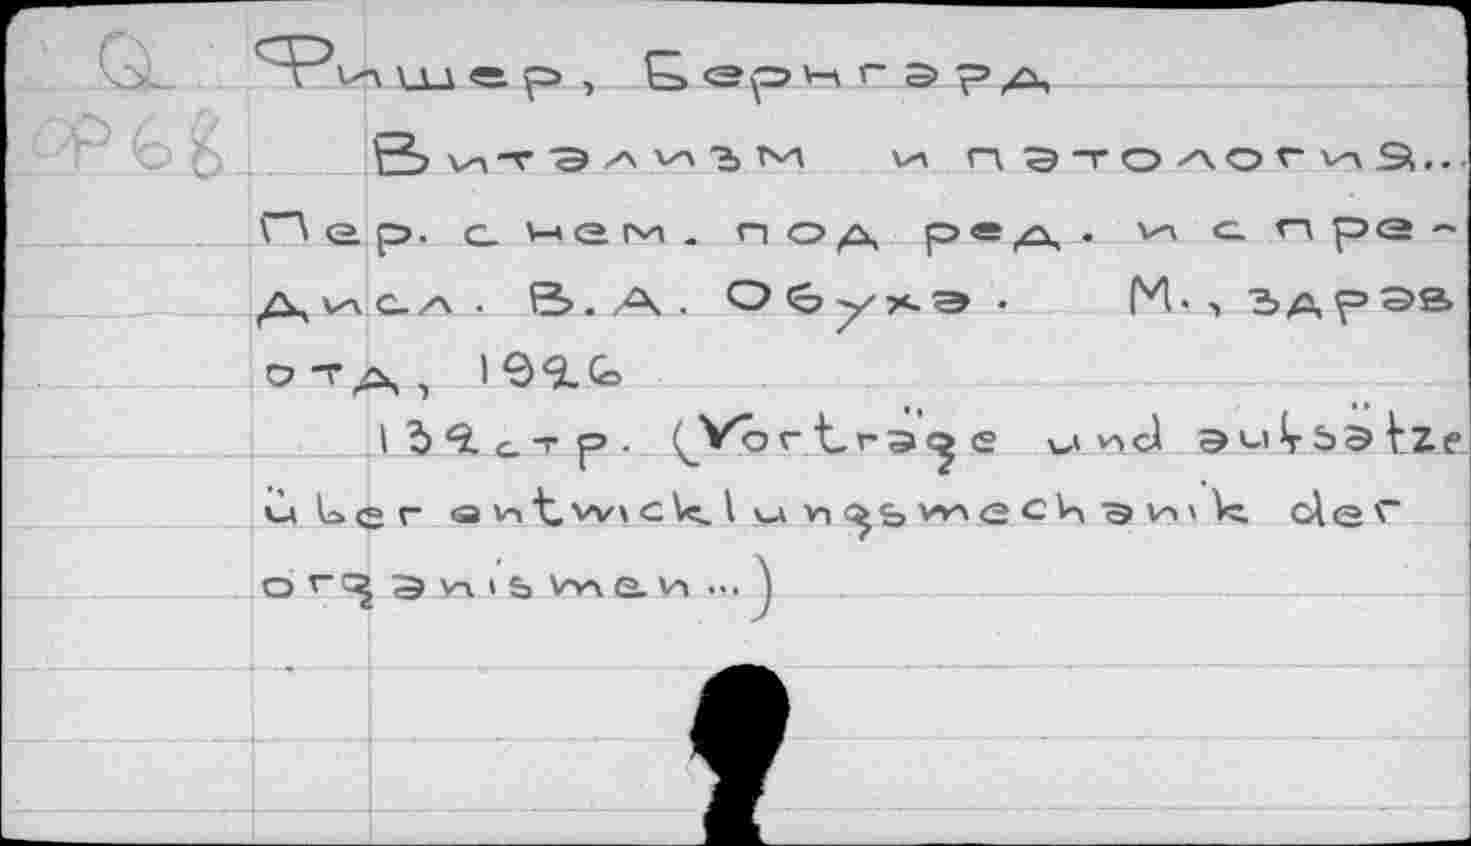 Q Фишер, Бернгард
OP68 Витализм и патология...
Пер. с нем. под ред. и с пре-
дисл. В. А. Обуха. М., здрав
отд, 1926
132 стр. (Vorträge und aufsätze
über entwicklungsmechanik der
organismen...)